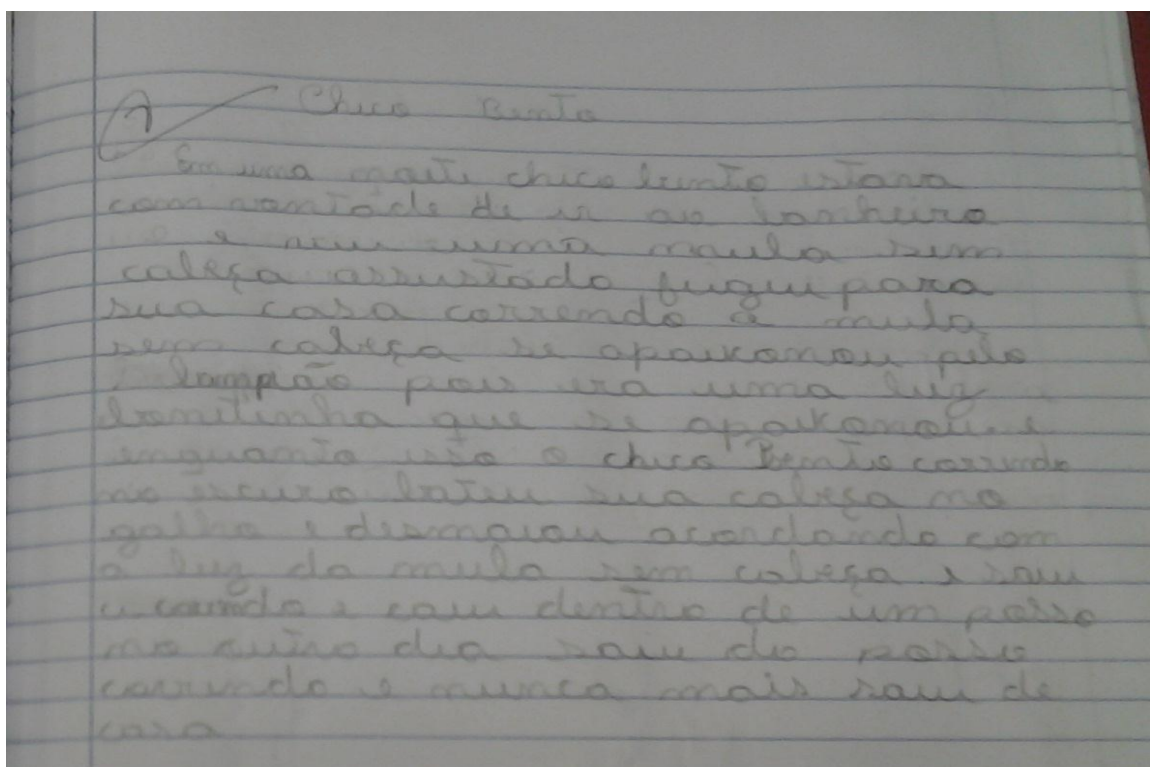 Chico Bento
Em uma noite chico bento estava
com vontade de ir ao banheiro
e viu uma maula sem
cabeça assustado fugiu para
sua casa correndo a mula
sem cabeça se apaixonou pelo
lampião pois era uma luz
bonitinha que se apaixonou e
enquanto isso o chico Bento correndo
no escuro bateu sua cabeça no
galho e desmaiou acordando com
a luz da mula sem cabeça e saiu
correndo e caiu dentro de um posso
no outro dia saiu do posso
correndo e nunca mais saiu de
casa